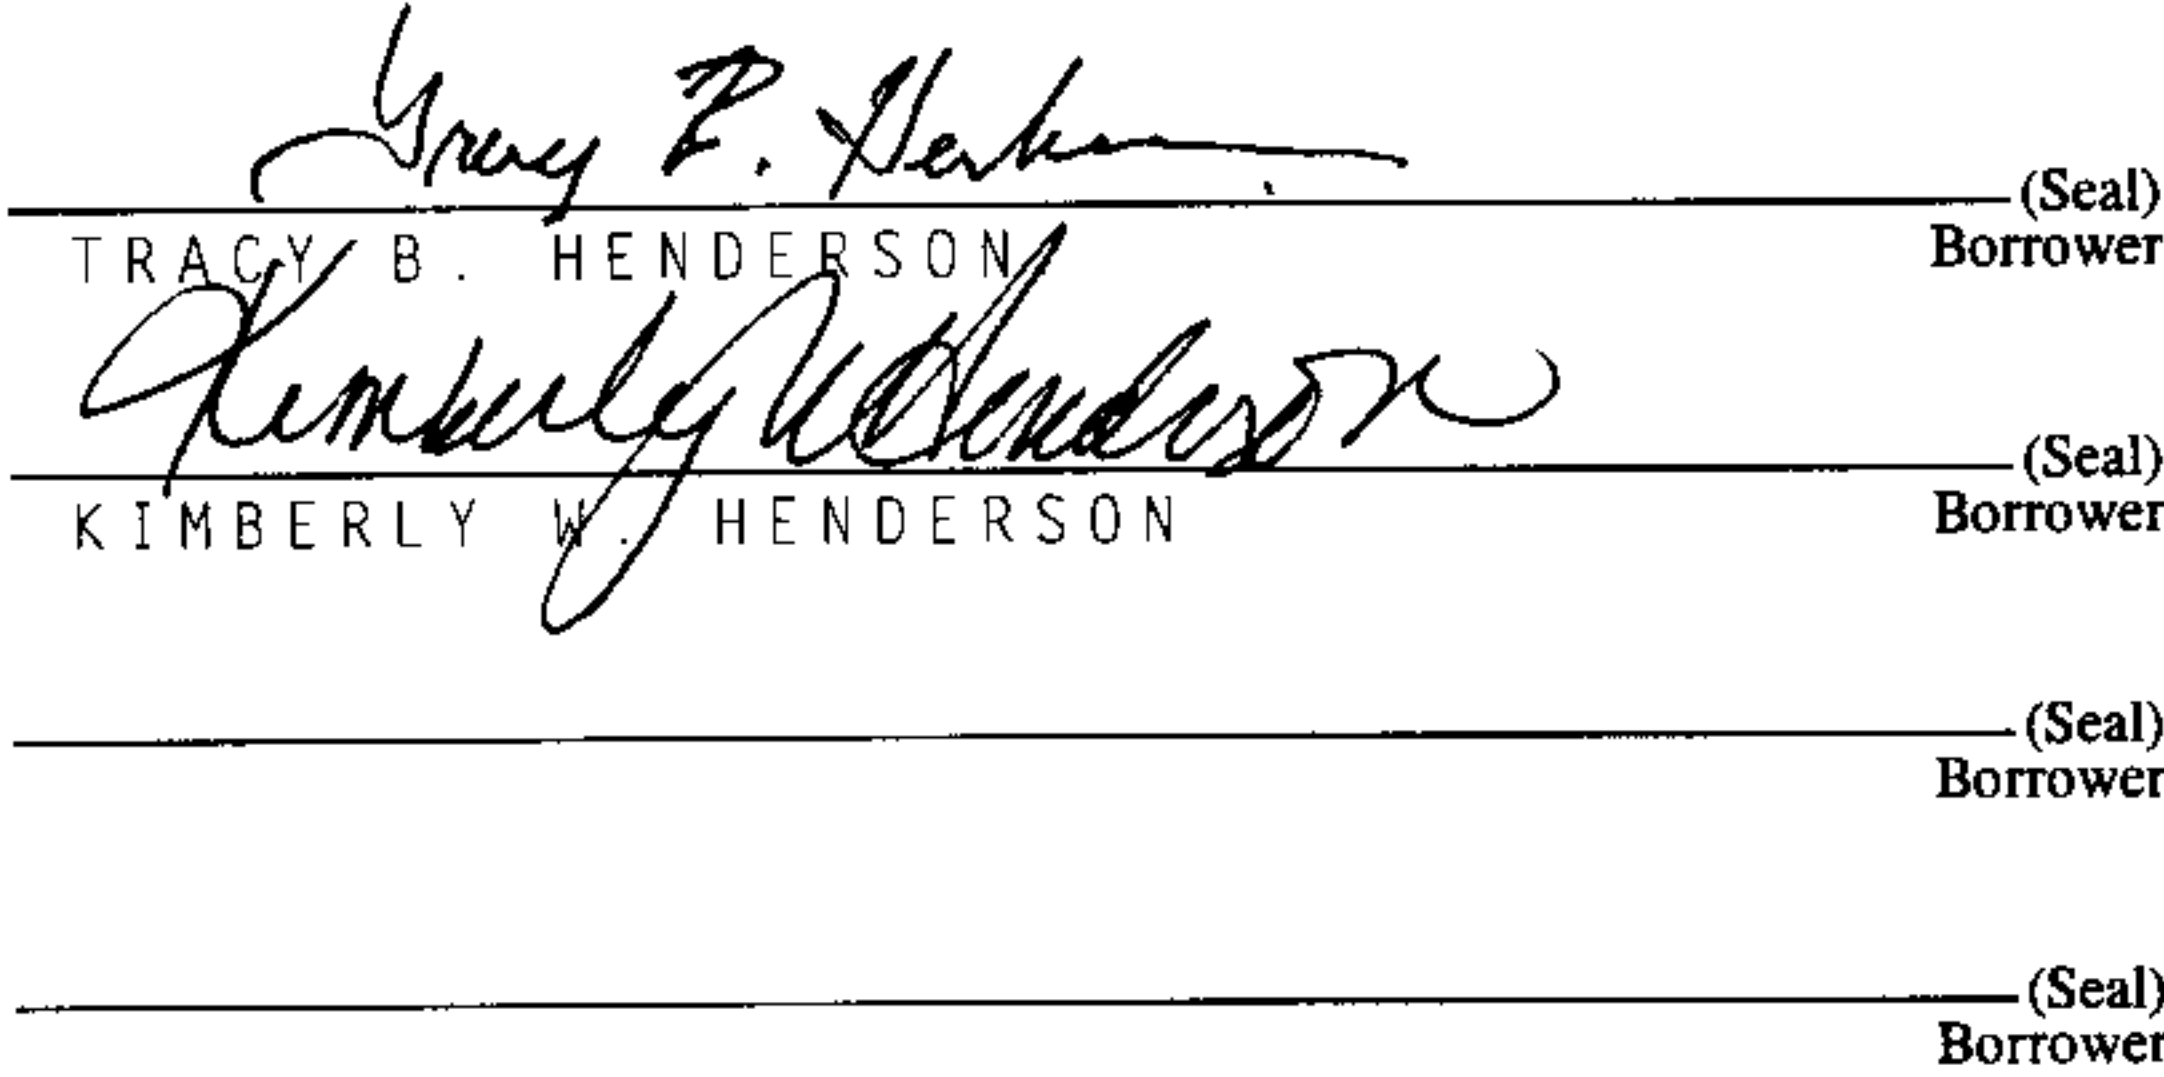 Tracy B. Henderson (Seal)
TRACY B. HENDERSON Borrower
Kimberly W Henderson (Seal)
KIMBERLY W. HENDERSON Borrower
(Seal)
Borrower
(Seal)
Borrower